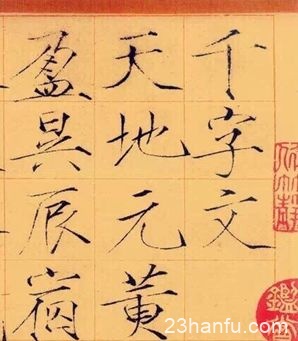 千字文
天地元黄
盈昃辰宿
鑑
23hanfu.com